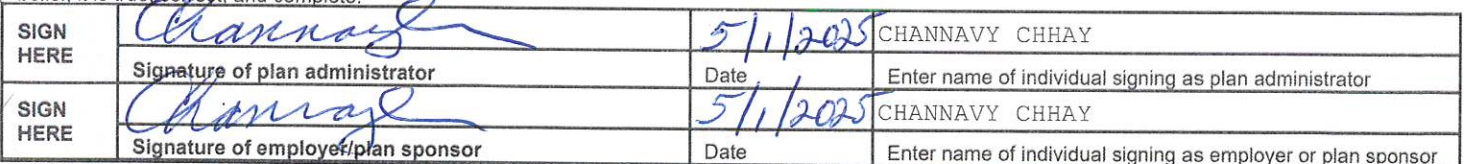 SIGN HERE Channavy 5/1/2025 CHANNAVY CHHAY
Signature of plan administrator Date Enter name of individual signing as plan administrator
SIGN HERE Channavy 5/1/2025 CHANNAVY CHHAY
Signature of employer/plan sponsor Date Enter name of individual signing as employer or plan sponsor